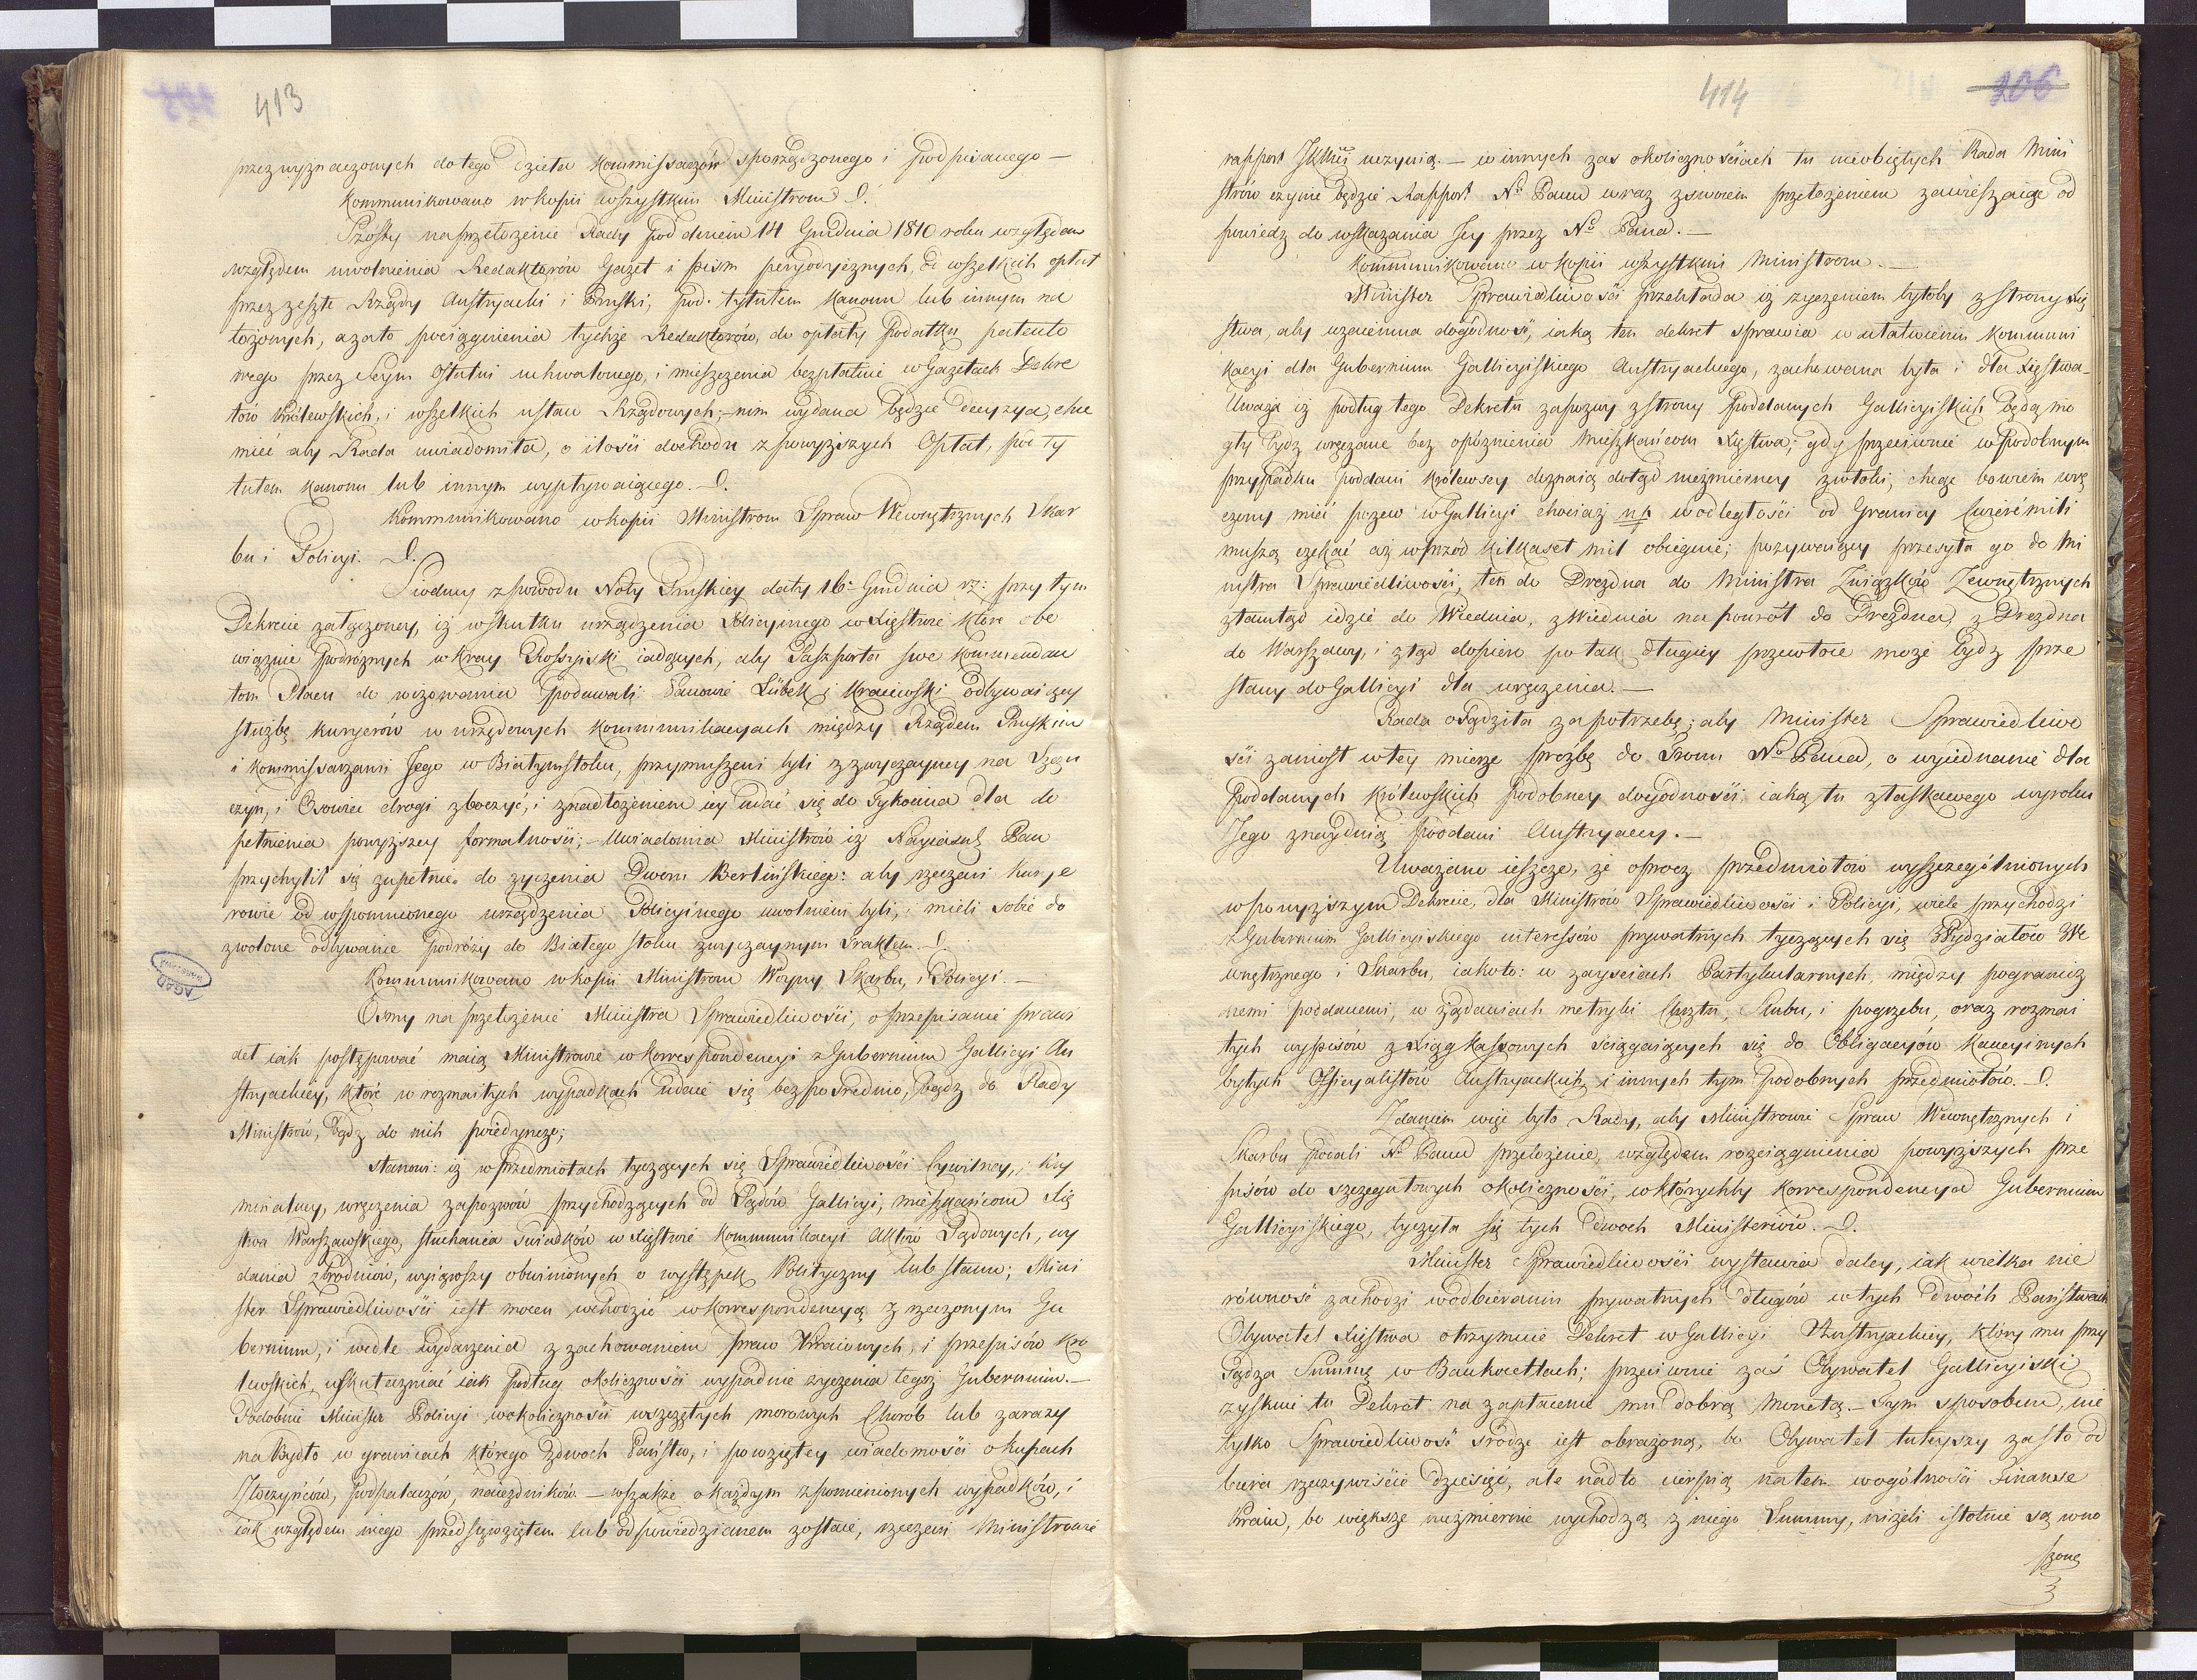 413
przez wyznaczonych do tego dzieła kommissarzów sporządzonego i podpisanego —
Kommunikowano w kopii wszystkim Ministrom
Szósty na przełożenie Rady pod dniem 14 Grudnia 1810 roku względem
względem uwolnienia Redaktorów Gazet i pism peryodycznych, od wszelkich opłat
przez zeszłe Rządy Austryacki i Pruski, pod tytułem Kanonu lub innym na
łożonych, a zato pociągnienia tychże Redaktorów, do opłaty Podatku patento
wego przez Seym Ostatni uchwalonego, i mieszczenia bezpłatnie w Gazetach Dekre
tów Królewskich, i wszelkich ustaw Rządowych; — nim wydana będzie decyzya, chce
mieć aby Rada uwiadomiła, o ilości dochodu z powyższych Opłat, pod ty
tułem kanonu lub innym wypływaiącego. —
Kommunikowano w kopii Ministrom Spraw Wewnętrznych Skar
bu i Policyi.
Siodmy z powodu Noty Pruskiey daty 16. Grudnia rz: przy tym
Dekrecie załączoney, iż w skutku urządzenia Policyinego w Xięstwie które obo
wiązuie podróżnych w Kray Rossyiski iadących, aby Paszporta swe kommendan
tom Placu do wizowania podawali Panowie Lübek i Kraiewski odbywaiący
służbę kuryerów w urzędowych kommunikacyach między Rządem Pruskim
i kommissarzami Jego w Białymstoku, przymuszeni byli z zwyczayney na Szczu
czyn, i Osowiec drogi zboczyć, i z nadłożeniem iey udać się do Tykocina dla do
pełnienia powyższey formalności; — Uwiadomia Ministrów iż Nayiaśń: Pan
przychylił się zupełnie do życzenia Dworu Berlińskiego: aby rzeczeni Kurye
rowie od wspomnionego urządzenia Policyinego uwolnieni byli, i mieli sobie do
zwolone odbywanie podróży do Białego stoku zwyczaynym Traktem.
Kommunikowano w kopii Ministrom Woyny, Skarbu, i Policyi. —
Osmy na przełożenie Ministra Sprawiedliwości, o przepisanie prawi
deł iak postępować maią Ministrowie w korrespondencyi z Gubernium Gallicyi Au
stryackiey, które w rozmaitych wypadkach udaie się bezpośrednio, bądz do Rady
Ministrów, bądz do nich poiedynczo;
Stanowi: iż w przedmiotach tyczących się Sprawiedliwości Cywilney, i kry
minalney, wręczenia zapozwów przychodzących od Sądów Gallicyi, mieszkańcom Xię
stwa Warszawskiego, słuchania świadków w Xięstwie kommunikacyi Aktów Sądowych, wy
dania zbrodniów, wyiąwszy obwinionych o występek Polityczny lub stanu; Mini
ster Sprawiedliwości iest mocen wchodzić w korrespondencyą z rzeczonym Gu
bernium, i wedle wydarzenia z zachowaniem praw Kraiowych, i przepisów Kro
lewskich, uskuteczniać iak podług okoliczności wypadnie życzenia tegoż Gubernium. —
Podobnie Minister Policyi w okoliczności wszczętych morowych Chorób lub zarazy
na Bydło w granicach którego z dwoch Państw, i powziętey wiadomości o kupach
Złoczyńców, podpalaczów, naiezdników — wszakże o każdym z pomienionych wypadków, i
iak względem niego przedsięwziętem lub odpowiedzianem zostaie, rzeczeni Ministrowie
414
206
rapport JKMci uczynią. — w innych zas okolicznościach tu nieobiętych Rada Mini
strów czynić będzie Rapport N. Panu wraz z swoiem przełożeniem zawieszaiąc od
powiedz do wskazania Jey przez N. Pana. —
Kommunikowano w kopii wszystkim Ministrom. —
Minister Sprawiedliwości przekłada iż życzeniem byłoby z strony Xię
stwa, aby wzaiemna dogodność, iaką ten dekret sprawia w ułatwieniu Kommuni
kacyi dla Gubernium Gallicyiskiego Austryackiego, zachowana była i dla Xięstwa —
Uważa iż podług tego Dekretu zapozwy z strony poddanych Gallicyiskich będą mo
gły bydz wręczane bez opóźnienia Mieszkańcom Xięstwa; gdy przeciwnie w podobnym
przypadku poddani królewscy doznaią dotąd niezmierney zwłoki, chcąc bowiem wrę
czony mieć pozew w Gallicyi chociaż np w odległości od Granicy ćwierć mili
muszą czekać aż wprzód kilkaset mil obiegnie; pozywaiący przesyła go do Mi
nistra Sprawiedliwości, ten do Drezdna do Ministra Związków Zewnętrznych
ztamtąd idzie do Wiednia, z Wiednia na powrót do Drezdna, z Drezdna
do Warszawy, i ztąd dopiero po tak długiey przewłoce może bydz prze
słany do Gallicyi dla wręczenia. —
Rada osądziła za potrzebę, aby Minister Sprawiedliwo
ści zaniosł w tey mierze prozbę do Tronu N. Pana, o wyiednanie dla
Poddanych Królewskich podobney dogodności, iaką tu z łaskawego wyroku
Jego znaydnią poddani Austryaccy. —
Uważano ieszcze, że oprocz przedmiotów wyszczególnionych
w powyższym Dekrecie, dla Ministrów Sprawiedliwości i Policyi, wiele przychodzi
z Gubernium Gallicyiskiego interessów prywatnych tyczących się Wydziałów We
wnętrznego i Skarbu, iakoto: w zayściach Partykularnych, między pogranicz
nemi poddanemi, w żądaniach metryki Chrztu, Ślubu, i pogrzebu, oraz rozmai
tych wypisów z Xiąg kassowych ściągaiących się do Obligacyów kaucyinych
byłych Officyalistów Austryackich, i innych tym podobnych przedmiotów.
Zdaniem więc było Rady, aby Ministrowie Spraw Wewnętrznych i
Skarbu podali N. Panu przełożenie, względem rozciągnienia powyższych prze
pisów do szczegułowych okoliczności, w którychby korrespondencya Gubernium
Gallicyiskiego, tyczyła się tych dwoch Ministeriów.
Minister Sprawiedliwości wystawia daley, iak wielka nie
równość zachodzi w odbieraniu prywatnych długów w tych dwóch Państwach
Obywatel Xięstwa otrzymuie Dekret w Gallicyi Austryackiey, który mu przy
sądza Summę w Bankocetlach; przeciwnie zaś Obywatel Gallicyiski
zyskuie tu Dekret na zapłacenie mu dobrą monetą. — Tym sposobem, nie
tylko Sprawiedliwość srodze iest obrażoną, bo Obywatel tuteyszy za sto od
biera rzeczywiście dziesięć, ale nadto cierpią na tem wogólności Finanse
Kraiu, bo większe niezmiernie wychodzą z niego Summy, niżeli istotnie są wno
szone